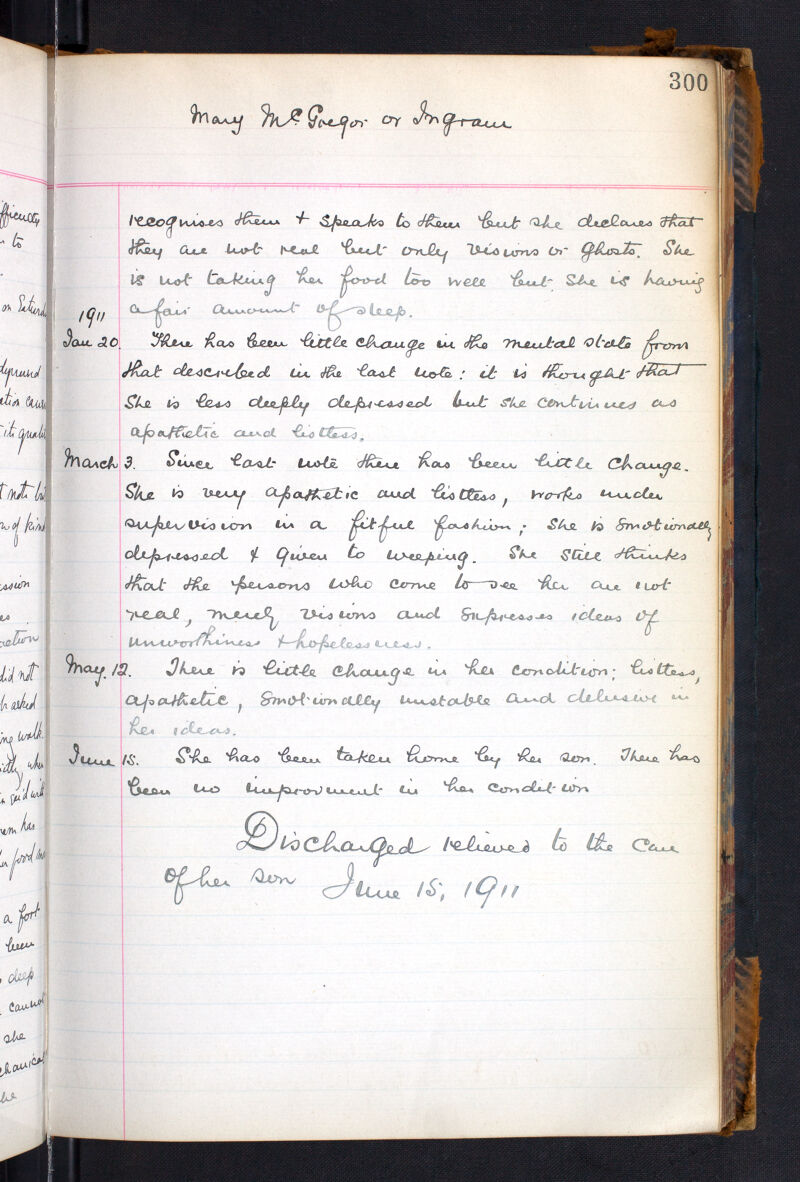 300
Mary McGregor or Ingram
recognises them + speaks to them but she declares that
they are not real but only visions or ghosts. She
is not taking her food too well but she is having
1911
a fair amount of sleep.
Jan 20. There has been little change in the mental state from
that described in the last note: it is thought that
she is less deeply depressed but she continues as
apathetic and listless.
March 3. Since last note there has been little change.
She is very apathetic and listless, works under
supervision in a fitful fashion; she is emotionally
depressed & given to weeping. She still thinks
that the persons who come to see her are not
real, merely visions and expresses ideas of
unworthiness & hopelessness.
May. 12. There is little change in her condition; listless,
apathetic, emotionally unstable and delusive in
her ideas.
June 15. She has been taken home by her son. There has
been no improvment in her condition
Discharged relieved to the care
of her son June 15, 1911
to
on
depressed
did not
asked
walk
when
has
food
a fort
been
deep
cannot
she